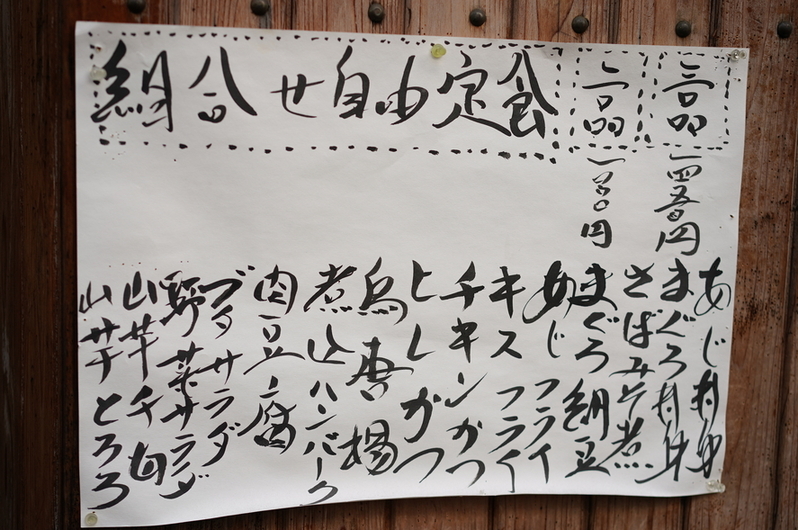 組合せ自由定食
二品
三品
一四五〇円
あじ刺身
まぐろ刺身
さばみそ煮
まぐろ納豆
あじフライ
キスフライ
チキンかつ
ヒレかつ
鳥唐揚
煮込ハンバーグ
肉豆腐
ブタサラダ
野菜サラダ
山芋千切
山芋とろろ